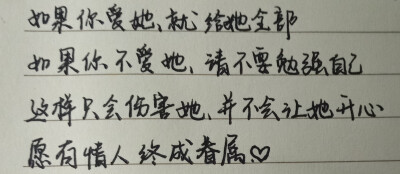 如果你爱她、就给她全部
如果你不爱她、请不要勉强自己
这样只会伤害她、并不会让她开心
愿有情人终成眷属♡